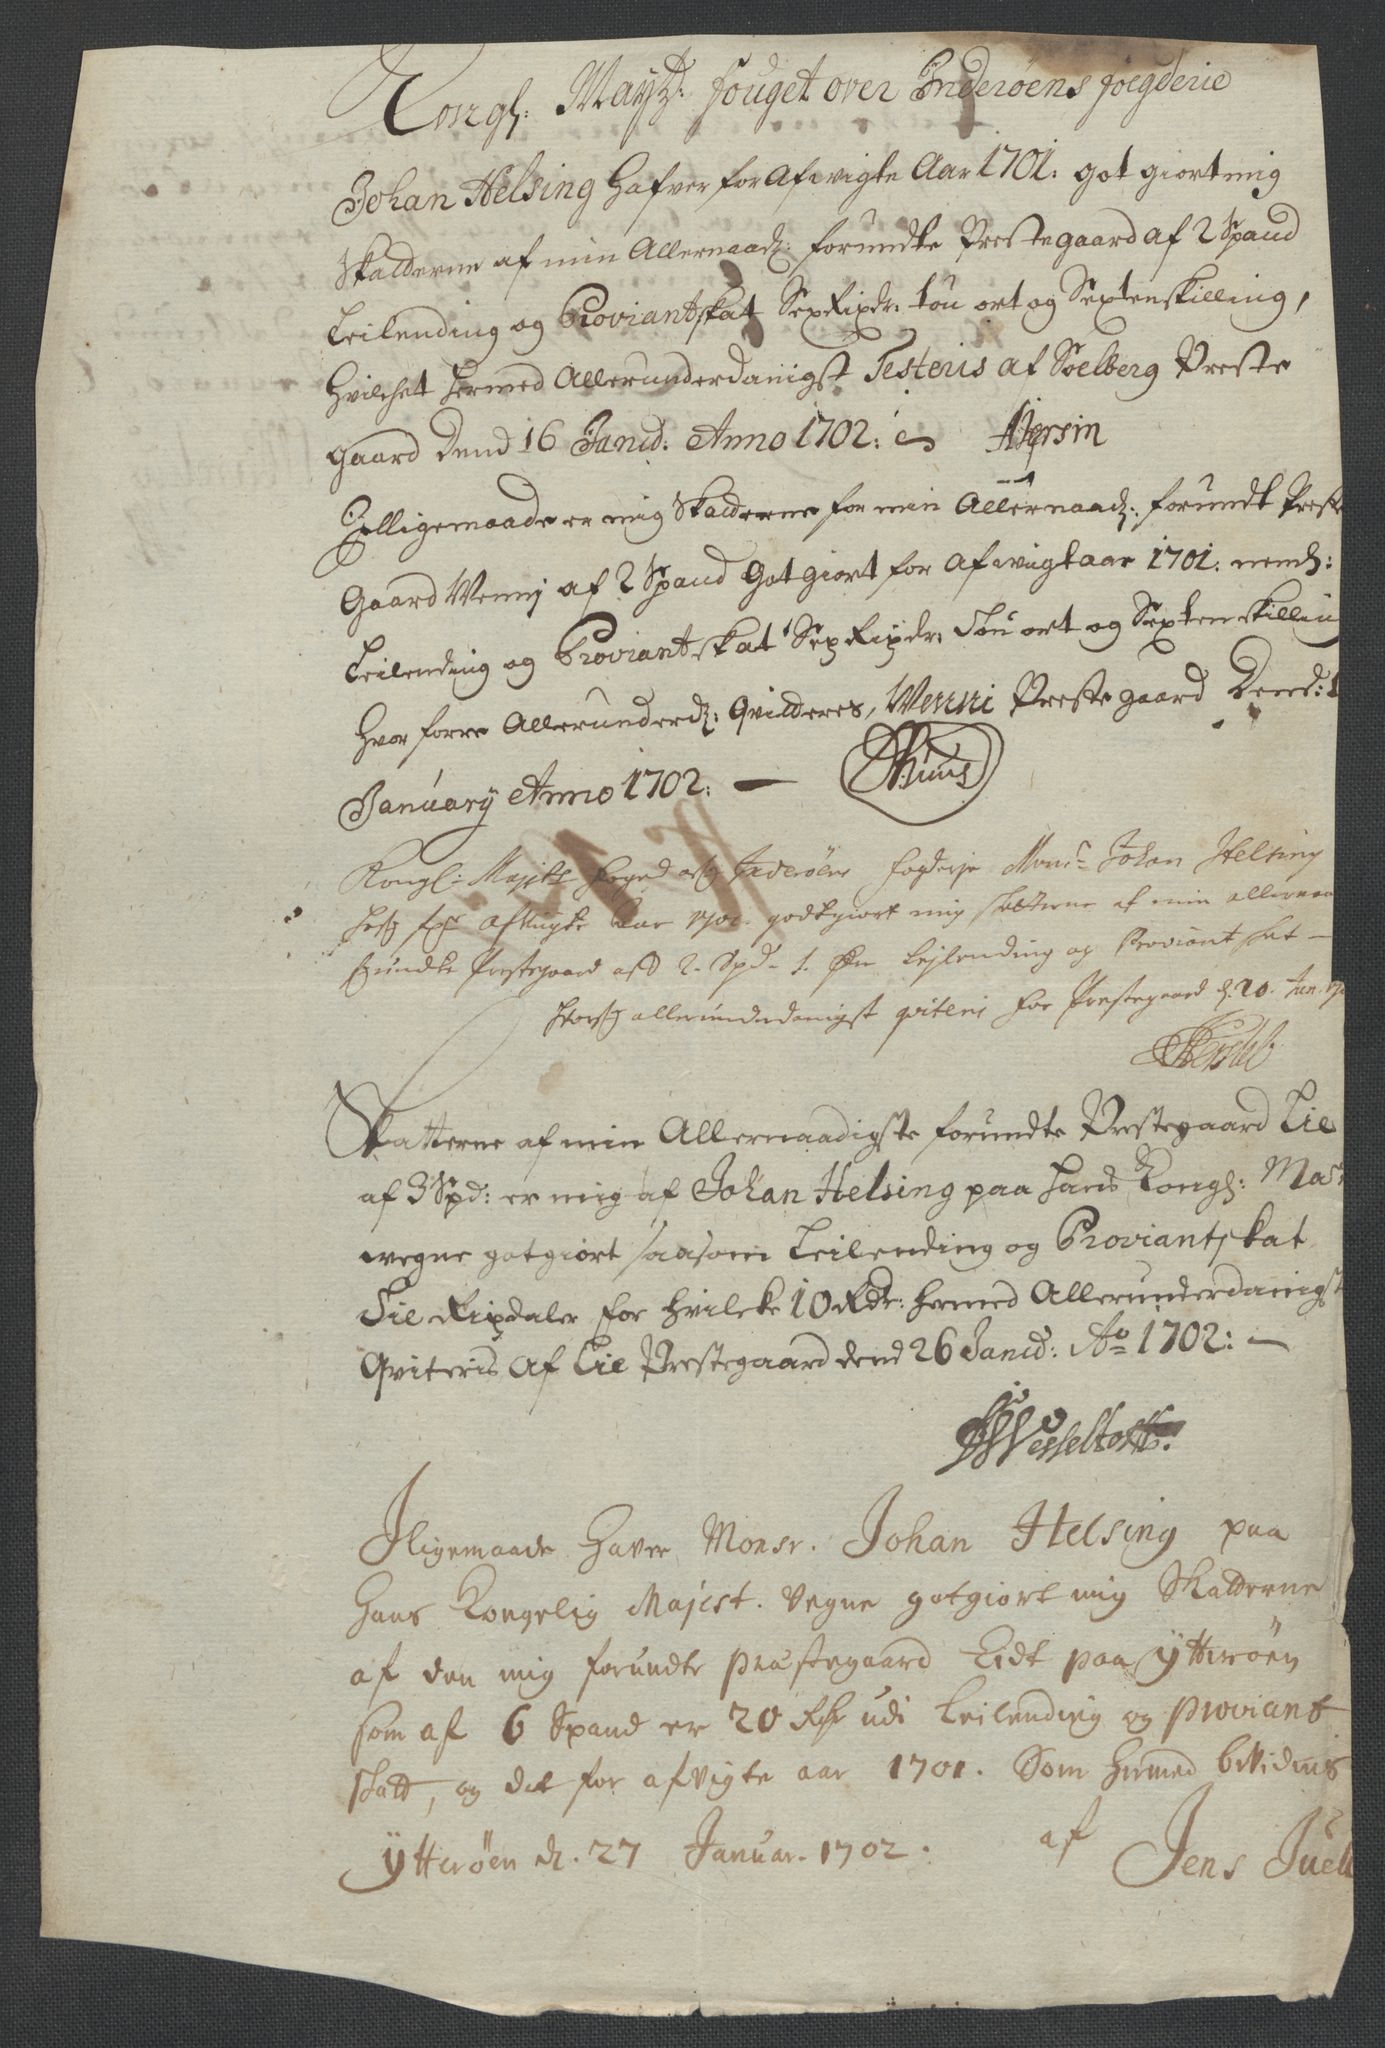 Kongl: Maytz: fouget over Inderøens foegderie
Johan Helsing hafver for afvigte Aar 1701: got giort mig
Skatterne af min Allernaadz: forundte Prestegaard af 2 Spand
Leilending og Proviantskat Sex Rixdr: tou ort og Sextenskilling,
hvilchet hermed Allerunderdanigst Testeris af Soelberg Preste
gaard Dend 16 Janvd: Anno 1702:
Illigemaade er mig Skatterne for min Allernaadz: forundt Preste
Gaard Wenni af 2 Spand Got giort for afvigt aar 1701: neml:
Leilending og Proviantskat Sex Rixdr: Tou ort og Sexten skilling
hvor forre Allerunderdz: Qvitteres, Wenni Preste gaard Dend:
January Anno 1702:
Kongl: Maytts foged ofr Inderøens fogderje Monsr Johan Helsing
hafr for afvigte Aar 1701. godtgiort mig skatterne af min allernaa
forundte Prestegaard af 2. Spd. 1. Øre Lejlending og Proviant skat
allerunderdanigst qviteris for Prestegaard d. 20. Jan.
Skatterne af min Allernaadigste forundte Prestegaard Lie
af 3 Spd: er mig af Johan Helsing paa hans Kongl: Mast
wegne gotgiort saasom Leilending og Proviantskat
Tie Rixdaler for hvilcke 10 Rdr: hermed Allerunderdanigst
Qviteris Af Lie Prestegaard dend 26 Janvd: Ao 1702:
Wesseltoft.
Iligemaade haver Monsr. Johan Helsing paa
hans Kongelig Majest. vegne gotgiort mig Skatterne
af den mig forundte præstegaard Eidt paa ÿtterøen
som af 6 Spand er 20 Rdr udi Leilending og proviant
skatt, og det for afvigte aar 1701. Som hermed bevidnis
ÿtterøen d. 27 Januar. 1702. af Jens Juell